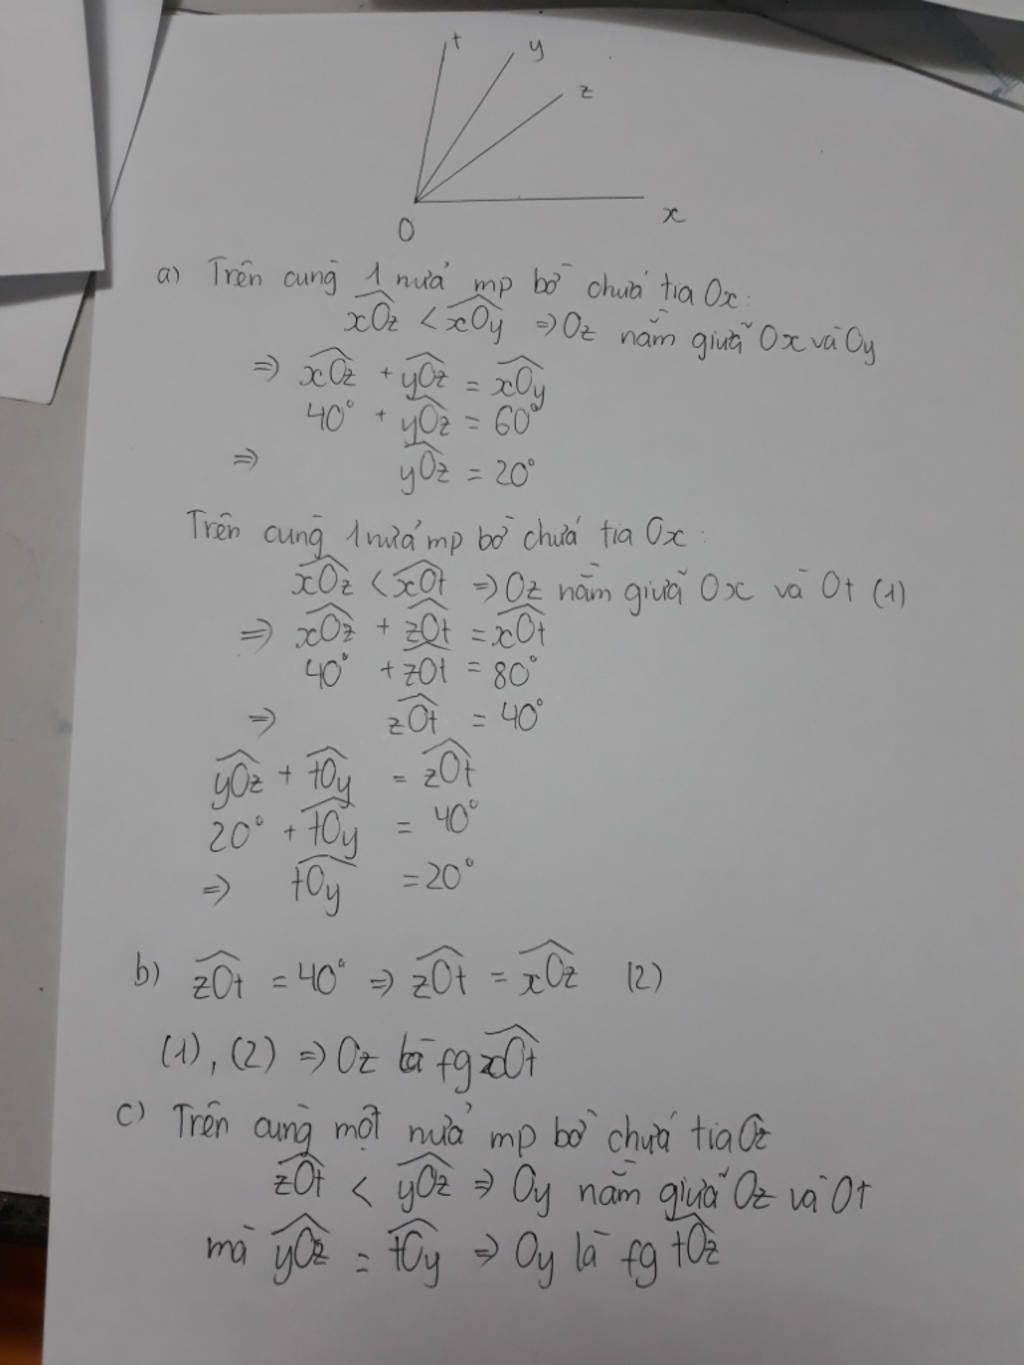 t
y
z
O
x
a) Trên cùng 1 nửa mp bờ chứa tia Ox:
$\widehat{xOz} < \widehat{xOy}$ ⇒ Oz nằm giữa Ox và Oy
⇒ $\widehat{xOz} + \widehat{yOz} = \widehat{xOy}$
40° + $\widehat{yOz}$ = 60°
⇒ $\widehat{yOz}$ = 20°
Trên cùng 1 nửa mp bờ chứa tia Ox:
$\widehat{xOz} < \widehat{xOt}$ ⇒ Oz nằm giữa Ox và Ot (1)
⇒ $\widehat{xOz} + \widehat{zOt} = \widehat{xOt}$
40° + $\widehat{zOt}$ = 80°
⇒ $\widehat{zOt}$ = 40°
$\widehat{yOz} + \widehat{tOy} = \widehat{zOt}$
20° + $\widehat{tOy}$ = 40°
⇒ $\widehat{tOy}$ = 20°
b) $\widehat{zOt}$ = 40° ⇒ $\widehat{zOt} = \widehat{xOz}$ (2)
(1), (2) ⇒ Oz là fg $\widehat{xOt}$
c) Trên cùng một nửa mp bờ chứa tia Oz
$\widehat{zOt} < \widehat{yOz}$ ⇒ Oy nằm giữa Oz và Ot
mà $\widehat{yOz} = \widehat{tOy}$ ⇒ Oy là fg $\widehat{tOz}$